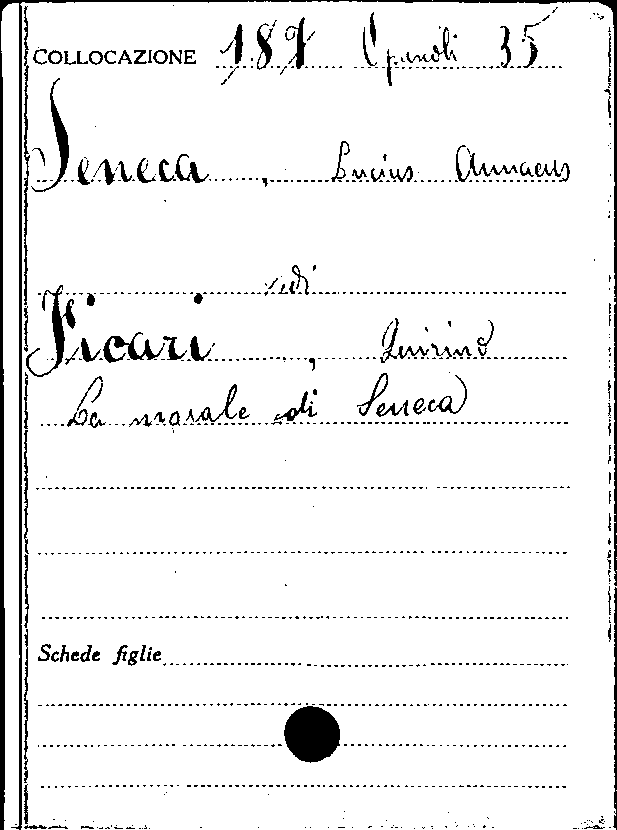 COLLOCAZIONE 187 Opuscoli 35
Seneca, Lucius Annaeus
vedi
Ficari, Quirino
La morale di Seneca
Schede figlie